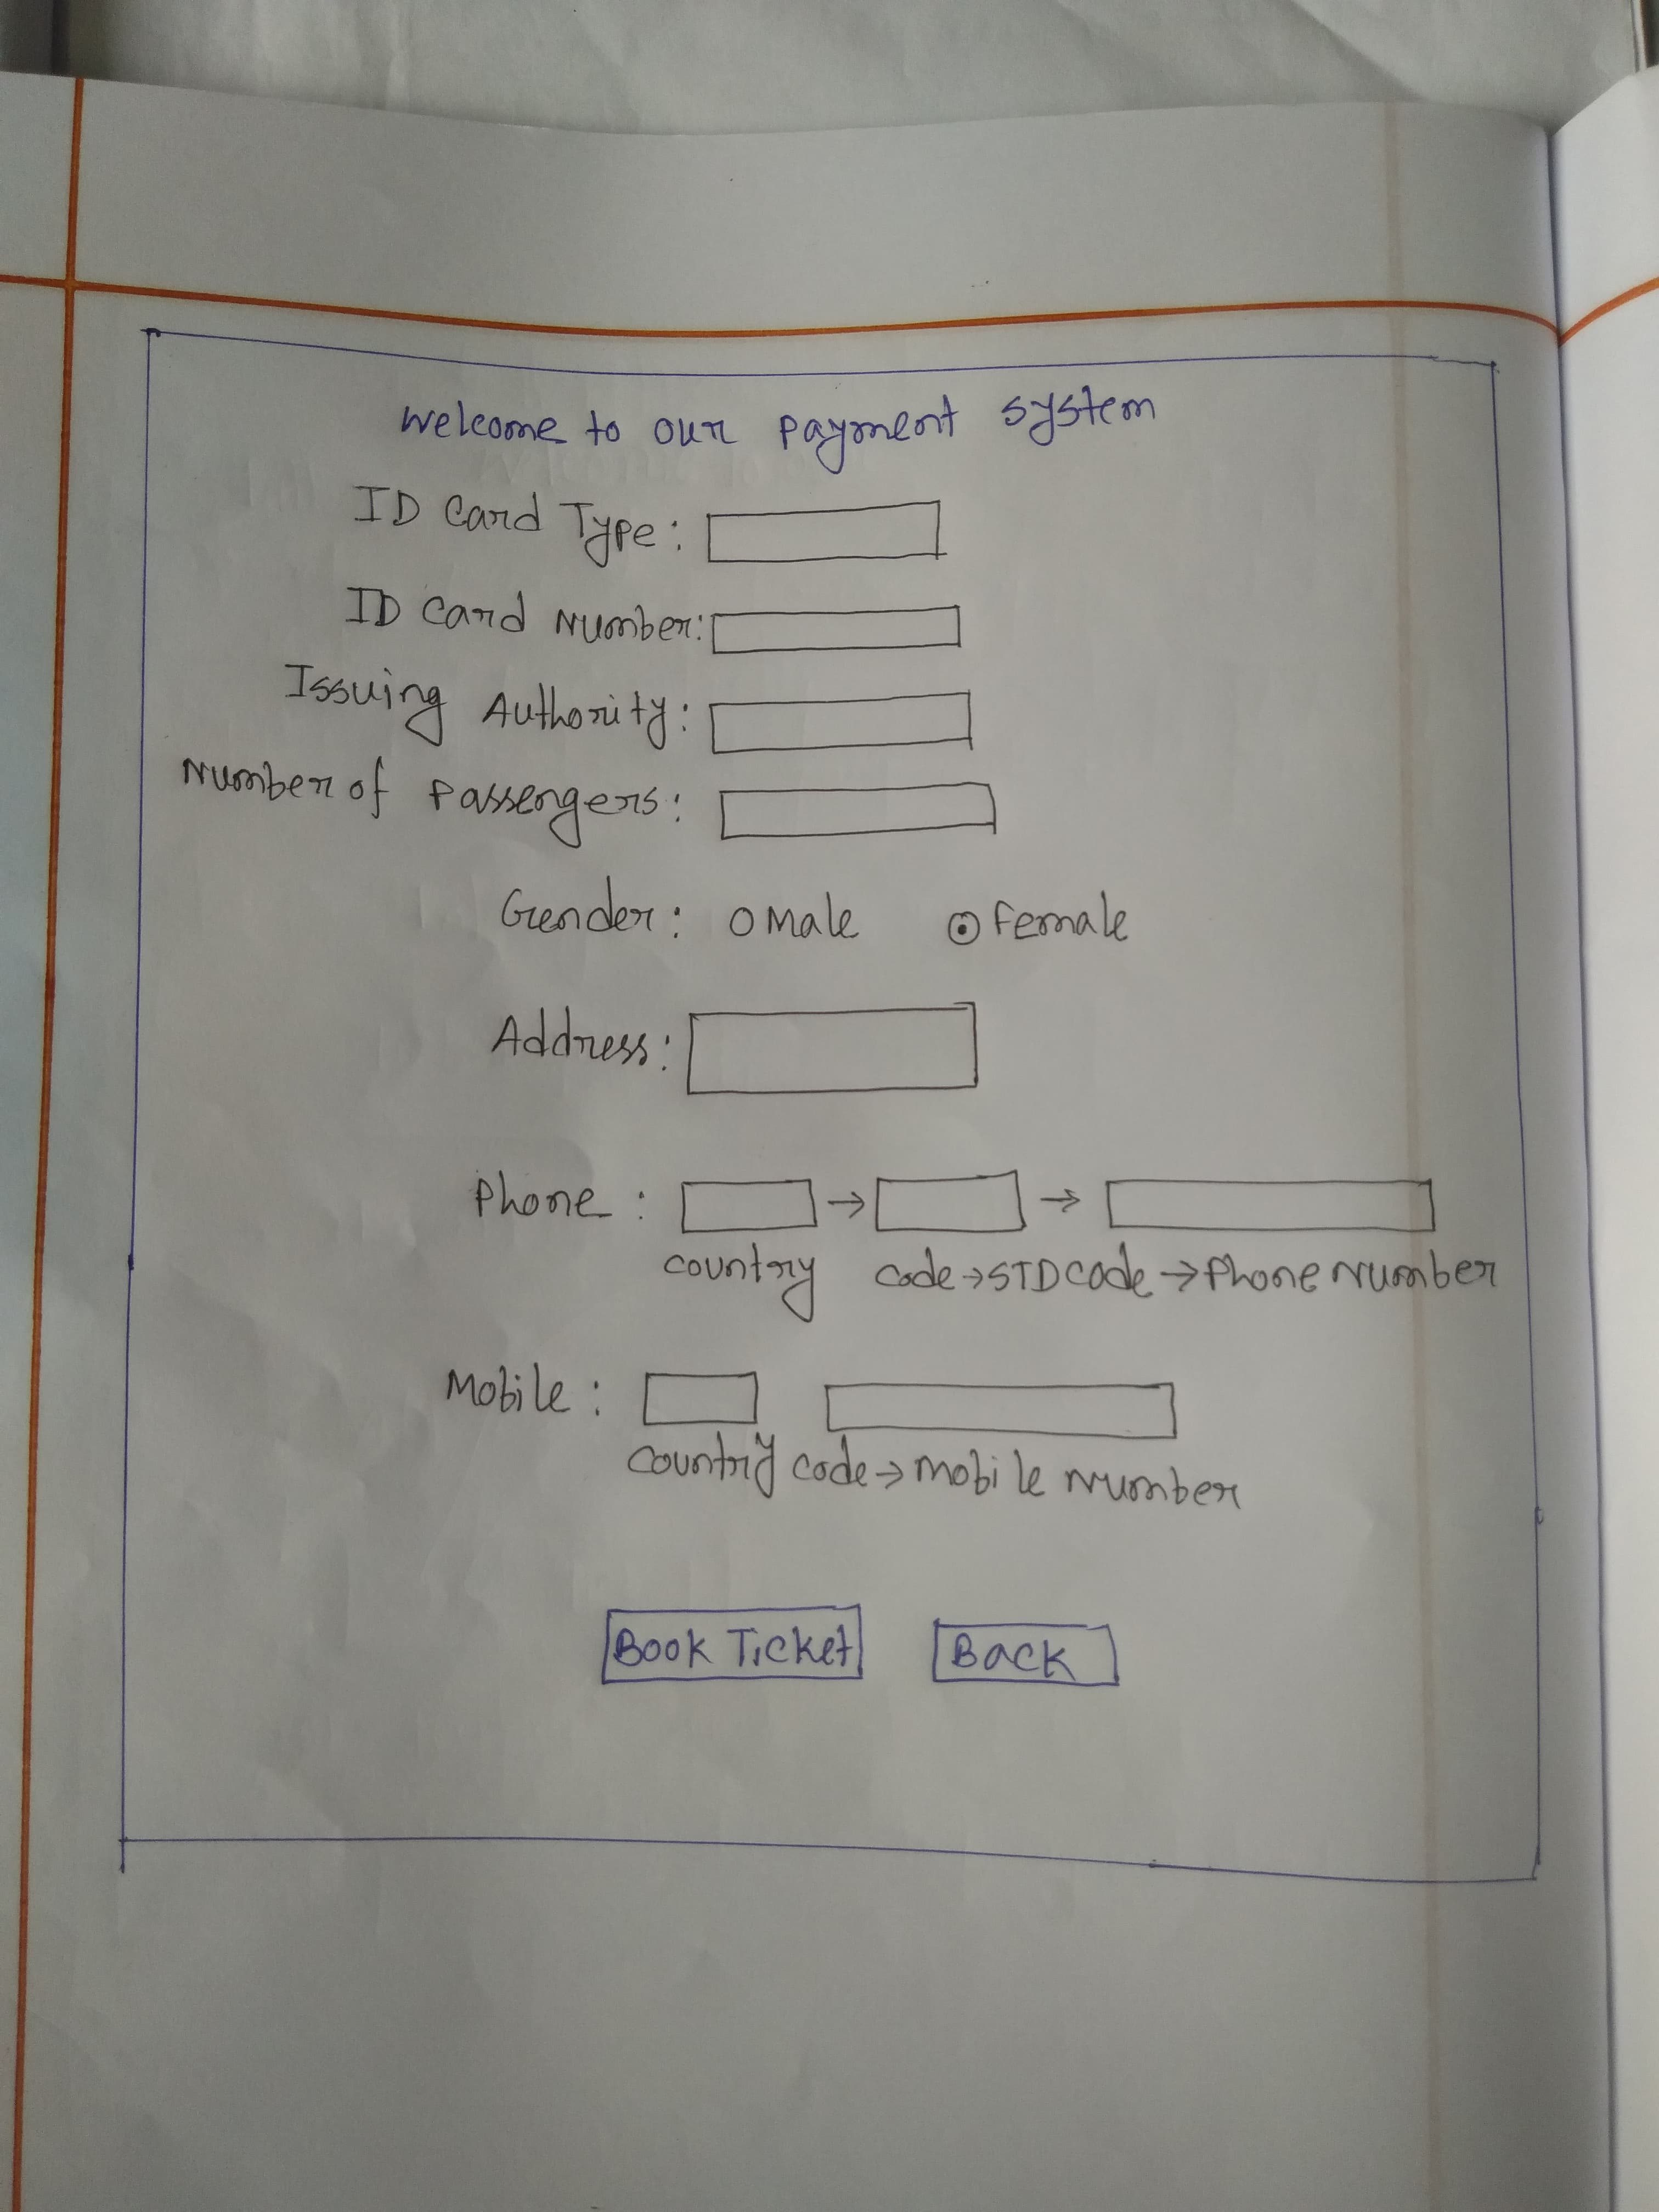 Welcome to our payment system
ID Card Type:
ID Card Number:
Issuing Authority:
Number of Passengers:
Gender: Male Female
Address:
Phone: → →
country code→STD code→Phone Number
Mobile:
country code→Mobile Number
Book Ticket Back